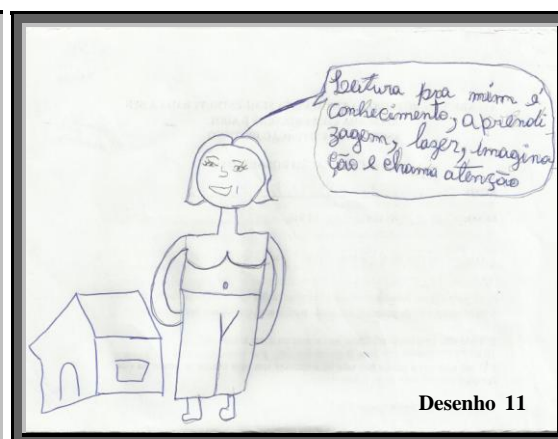 Leitura pra mim é
conhecimento, aprendi
zagem, lazer, imagina
ção e chama atenção
Desenho 11